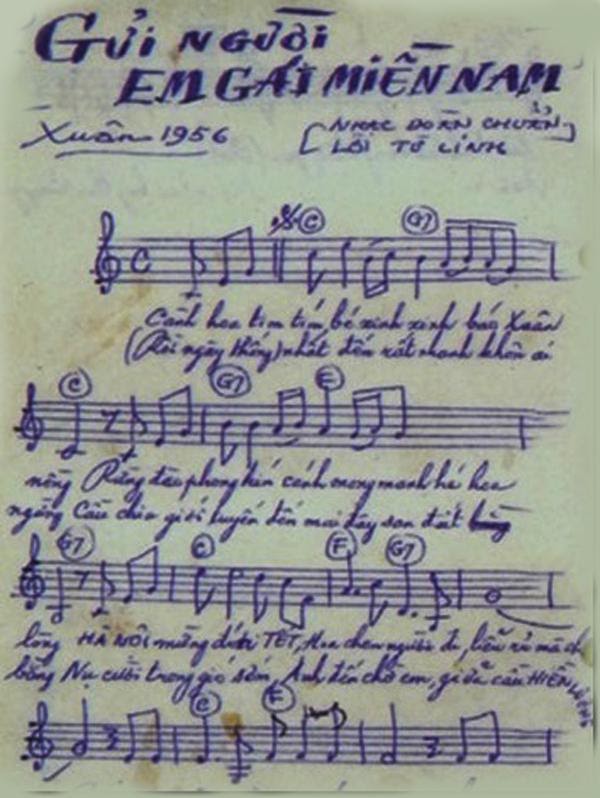 GỬI NGƯỜI
EM GÁI MIỀN NAM
Xuân 1956
[NHẠC ĐOÀN CHUẨN]
LỜI TỪ LINH
C G7
C
Cành hoa tim tím, bé xinh xinh báo Xuân
(Rồi ngày thống) nhất đến rất nhanh không ai
C G7 E
nồng Rừng đào phong kín cánh mong manh hé hoa
ngăng Cầu chia giới tuyến đến mai đây san đất
G7 C F G7
lòng HÀ NỘI mừng đón TẾT, Hoa chen người đi, liễu rủ mà
bằng Nụ cười trong gió sớm, Anh đến chờ em, giữa cầu HIỀN LƯƠNG
C F